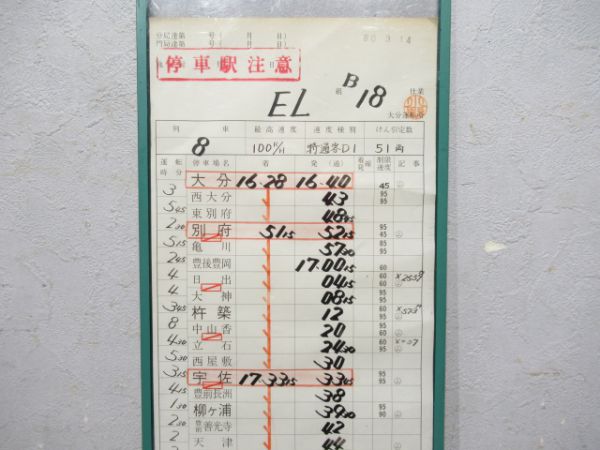 分局達第 号( 月 日)
門局達第 号( 月 日)
停車駅注意
60.3.14
EL 組 B18 仕業
列車 最高速度 速度種別 けん引定数
8 100K/H 特通客D1 51両
運転時分 停車場名 着 発(通) 着線発線 制限速度 記事
大分 16.28 16.40 45
3
西大分 43 95 95
5 45
東別府 48 45
2 30
別府 51 15 52 15 85 45
5 15
亀川 57 30
2 45
豊後豊岡 17.00 15
4
日出 04 15
4
大神 08 15
3 45
杵築 12
8
中山香 20
4 30
立石 24 30
5 30
西屋敷 30
3 15
宇佐 17.33 15 33 45 95
4 15
豊前長洲 38
1 30
柳ヶ浦 39 30 95 90
2 30
豊前善光寺 42
2
天津 44
2